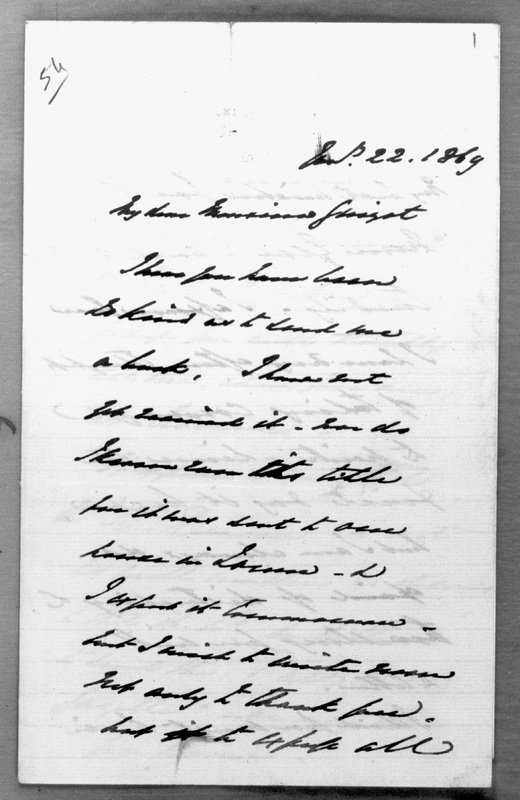 54
Jan. 22. 1869
My dear Monsieur Guizot
I hear you have been
so kind as to send me
a book. I have not
yet received it - nor do
I know even its title
for it was sent to our
house in -
I expect it tomorrow -
but I wish to write now
not only to thank you -
but to express all